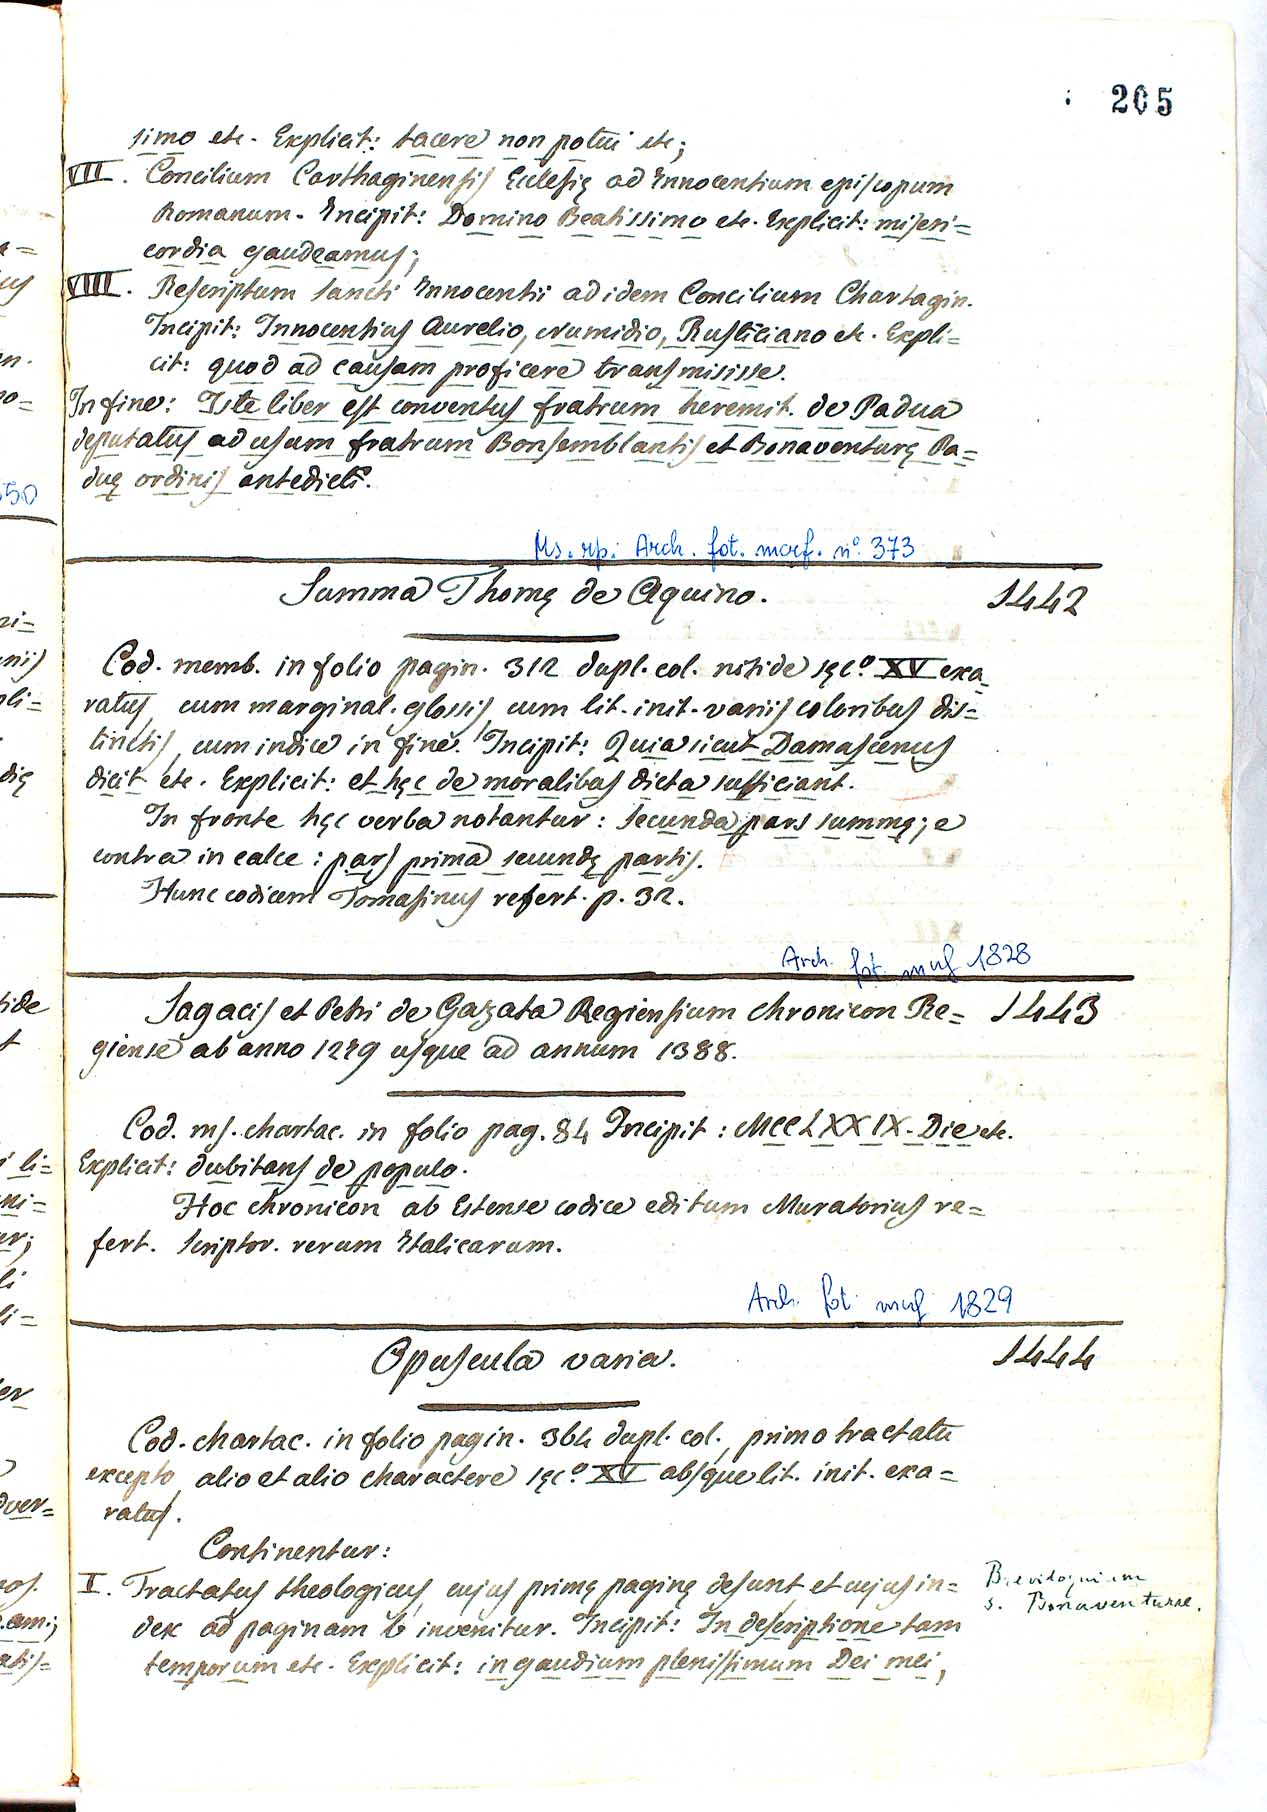 265
simo etc. Explicit: tacere non potui etc;
VII. Concilium Carthaginensis Ecclesię ad Innocentium episcopum
Romanum. Incipit: Domino Beatissimo etc. Explicit: miseri=
cordia gaudeamus;
VIII. Rescriptum Sancti Innocentii ad idem Concilium Chartagin.
Incipit: Innocentius Aurelio, Numidio, Rusticiano etc. Expli=
cit: quod ad causam proficere transmisisse.
In fine: Iste liber est conventus fratrum heremit. de Padua
deputatus ad usum fratrum Bonsemblantis et Bonaventurę Pa=
duę ordinis antedicti.
Ms. rip. Arch. fot. marf. n.° 373
Summa Thomę de Aquino. 1442
Cod. memb. in folio pagin. 312 dupl. col. nitide sęc.° XV exa=
ratus, cum marginal. glossis, cum lit. init. variis coloribus dis=
tinctis, cum indice in fine. Incipit: Quia sicut Damascenus
dicit etc. Explicit: et hęc de moralibus dicta sufficiant.
In fronte hęc verba notantur: secunda pars summę; e
contra in calce: pars prima secundę partis.
Hunc codicem Tomasinus refert. p. 32.
Arch. fot. marf 1828
Sagacis et Petri de Gazata Regiensium chronicon Re= 1443
giense ab anno 1279 usque ad annum 1388.
Cod. ms. chartac. in folio pag. 84 Incipit: MCCLXXIX. Die etc.
Explicit: dubitans de populo.
Hoc chronicon ab Estense codice editum Muratorius re=
fert. Scriptor. rerum Italicarum.
Arch. fot. marf 1829
Opuscula varia. 1444
Cod. chartac. in folio pagin. 364 dupl. col., primo tractatu
excepto, alio et alio charactere sęc.° XV absque lit. init. exa=
ratus.
Continentur:
I. Tractatus theologicus, cujus primę paginę desunt, et cujus in=
dex ad paginam 6 invenitur. Incipit: In descriptione tam
temporum etc. Explicit: in gaudium plenissimum Dei mei;
Breviloquium
s. Bonaventurae.